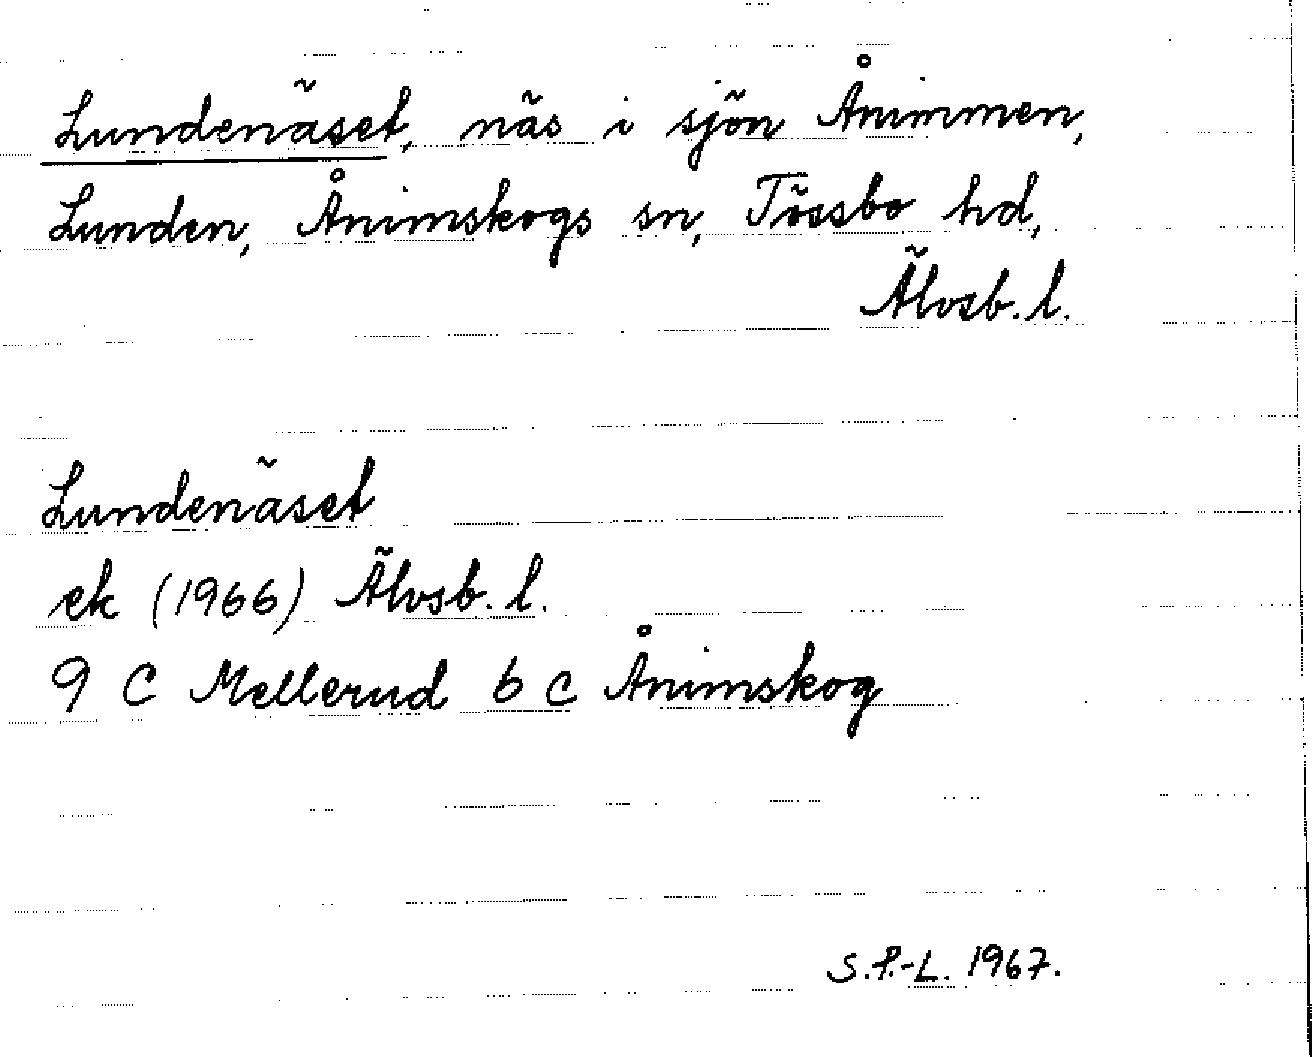 Lundenäset, näs i sjön Ånimmen,
Lunden, Ånimskogs sn, Tössbo hd,
Älvsb. l.
Lundenäset
ek (1966) Älvsb. l.
9 C Mellerud 6 c Ånimskog
S.P.-L. 1967.